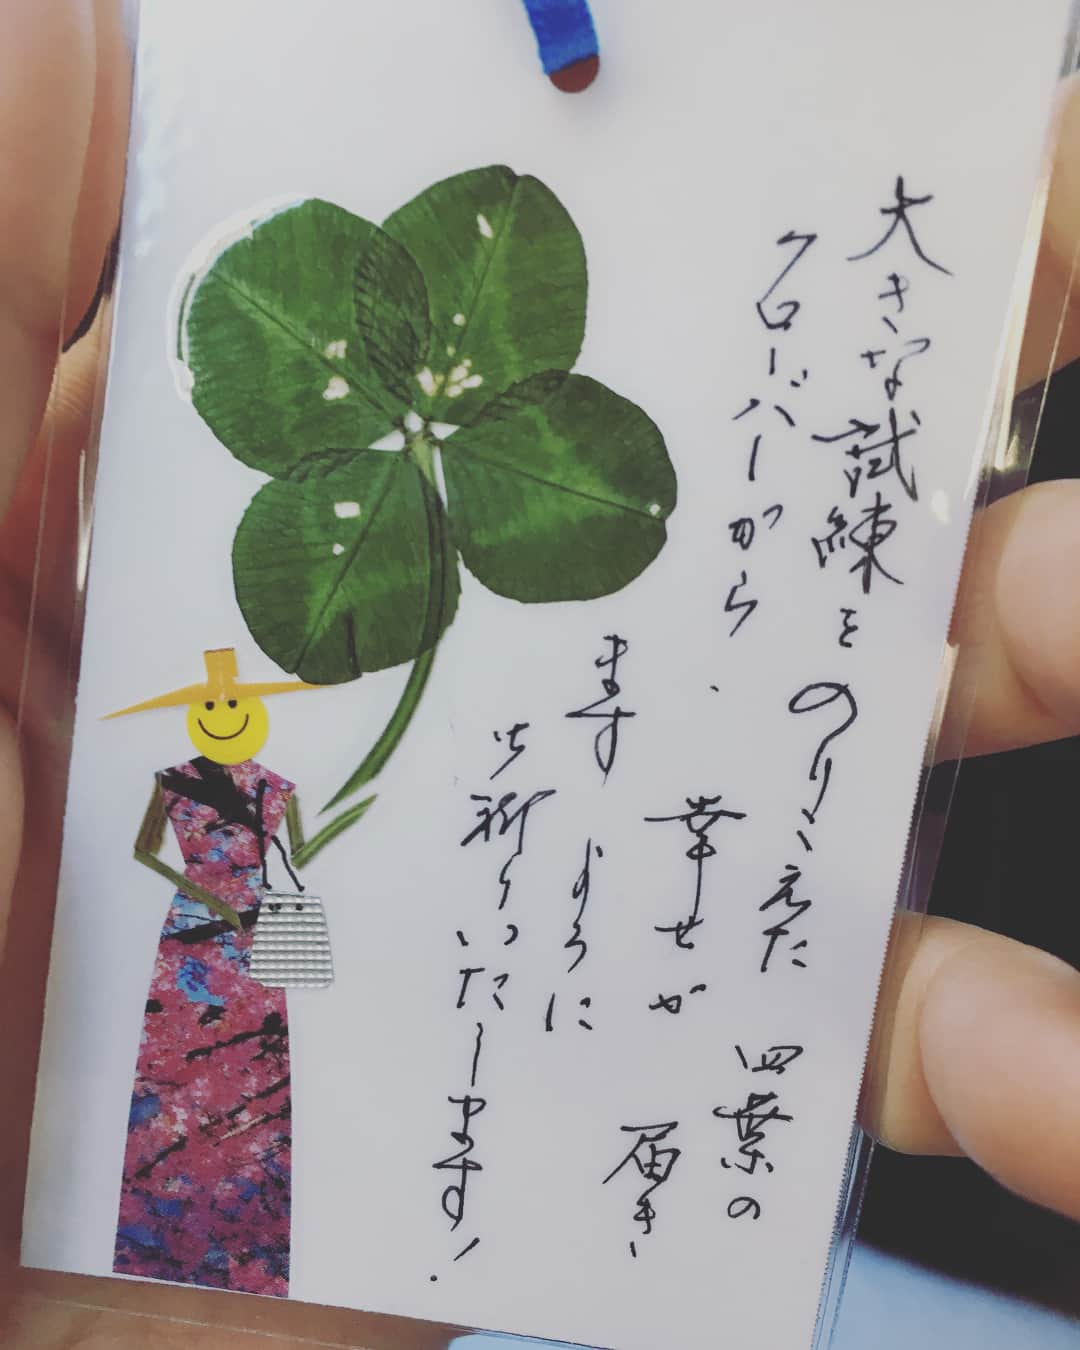 大きな試練をのりこえた四葉の
クローバーから、幸せが届き
ますようにお祈りいたします!